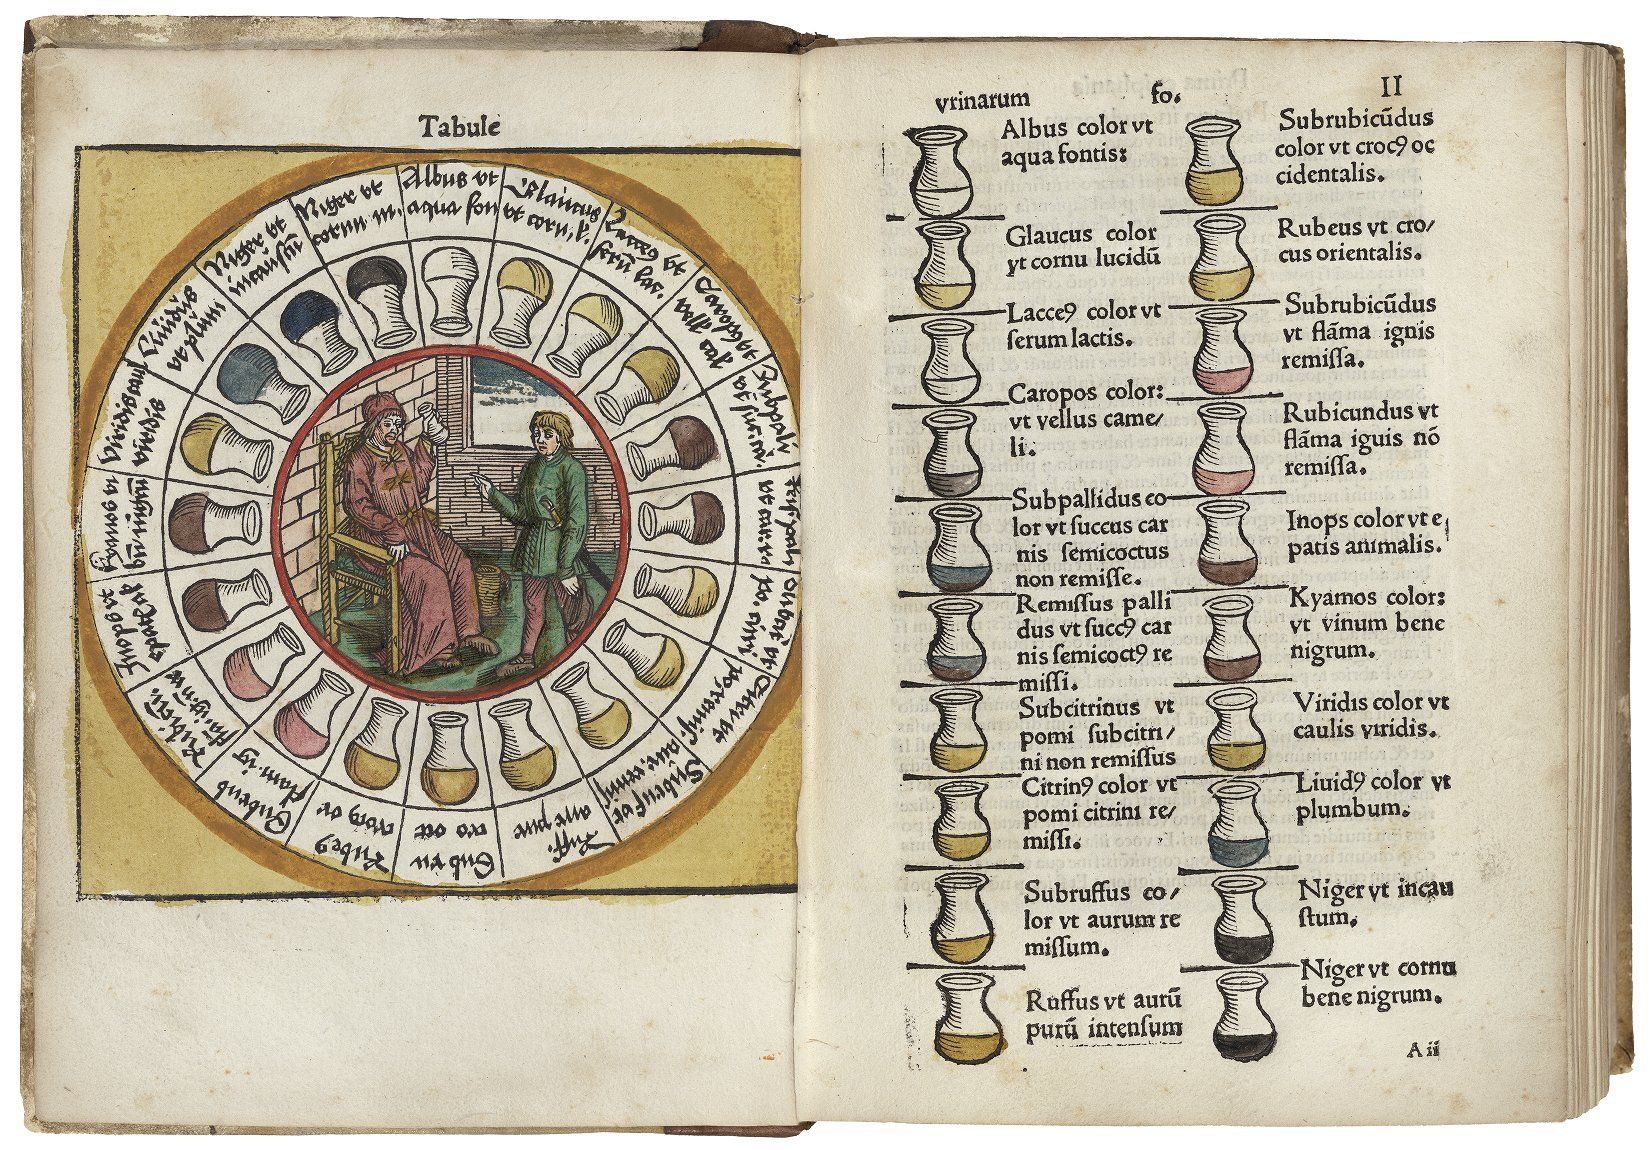 Tabule
Albus vt
aqua fon
Glaucus
vt cornu. l.
Lacce9 vt
serū lac.
Niger vt
cornu m.
Niger vt
incaustū
Liuidus
vt plūm
Viridis
viridis
Kyanos vt
Inopos vt
Rubeus
Rube9
Subru
vrinarum fo. II
Albus color vt
aqua fontis:
Glaucus color
yt cornu lucidū
Lacce9 color vt
ſerum lactis.
Caropos color:
vt vellus came/
li.
Subpallidus co
lor vt ſuccus car
nis ſemicoctus
non remiſſe.
Remiſſus palli
dus vt ſucc9 car
nis ſemicoct9 re
miſſi.
Subcitrinus vt
pomi ſubcitri/
ni non remiſſus
Citrin9 color vt
pomi citrini re/
miſſi.
Subruffus co/
lor vt aurum re
miſſum.
Ruffus vt aurū
purū intenſum
Subrubicūdus
color vt croc9 oc
cidentalis.
Rubeus vt cro/
cus orientalis.
Subrubicūdus
vt flāma ignis
remiſſa.
Rubicundus vt
flāma iguis nō
remiſſa.
Inops color vt e
patis animalis.
Kyamos color:
vt vinum bene
nigrum.
Viridis color vt
caulis viridis.
Liuid9 color vt
plumbum.
Niger vt incau
ſtum.
Niger vt cornu
bene nigrum.
A ii